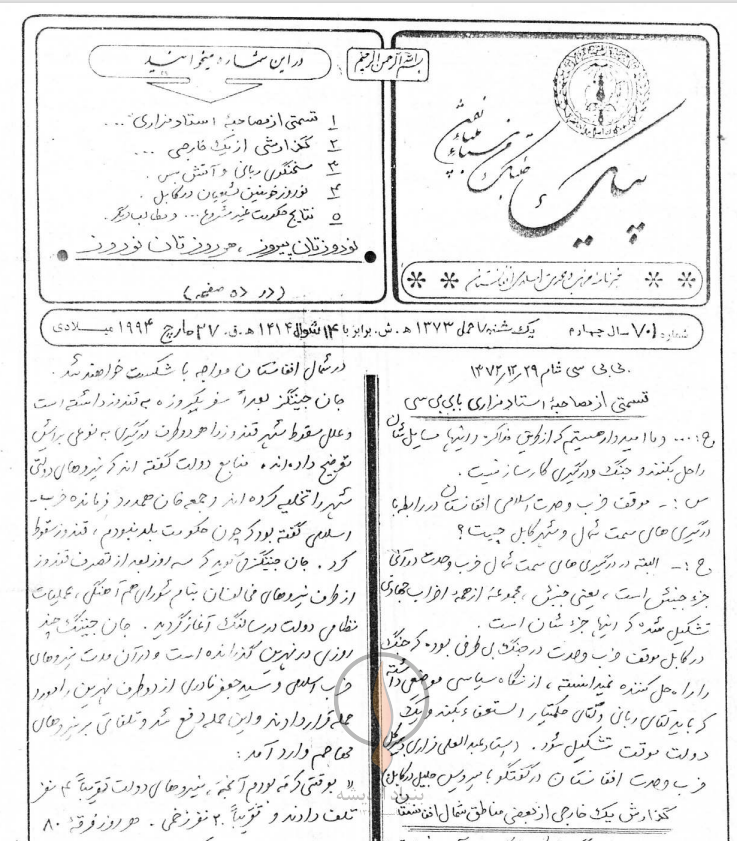 بسم الله الرحمن الرحیم
پیک
خبرنامه حزب وحدت اسلامی افغانستان
در این شماره میخوانید
۱ قسمتی از مصاحبهٔ استاد مزاری ...
۲ گزارشی از یک خارجی ...
۳ سخنگوی ربانی و آتش بس .
۴ نوروز خونین شیعیان در کابل .
۵ نتایج حکومت غیر مشروع ... و مطالب دیگر.
نوروزتان پیروز ، هر روزتان نوروز
(در ده صفحه)
شماره ۷۰۱ سال چهارم یک شنبه ۷ حمل ۱۳۷۳ ه.ش. برابر با ۱۴ شوال ۱۴۱۴ ه.ق. ۲۷ مارچ ۱۹۹۴ میلادی
بی بی سی شام ۱۳۷۲,۱۲,۲۹
قسمتی از مصاحبهٔ استاد مزاری با بی بی سی
ج : ... و ما امیدوار هستیم که از طریق مذاکره اینها مسایل شان
را حل بکنند و جنگ و درگیری کارساز نیست .
س : - موقف حزب وحدت اسلامی افغانستان در رابطه با
درگیری های سمت شمال و شهر کابل چیست ؟
ج : - البته در درگیری های سمت شمال حزب وحدت در آنجا
جزء جنبش است ، یعنی جنبش ، مجموعهٔ از همه احزاب جهادی
تشکیل شده که اینها جزء شان است .
در کابل موقف حزب وحدت در جنگ بی طرفی بوده که جنگ
را راه حل کننده نمیدانسته ، از نگاه سیاسی موضعی داشته
که باید آقای ربانی و آقای حکمتیار استعفاء بکند و یک
دولت موقت تشکیل شود . (استاد عبدالعلی مزاری دبیر کل
حزب وحدت افغانستان در گفتگو با میرویس جلیل در کابل)
گزارش یک خارجی از بعضی مناطق شمال افغانستان
در شمال افغانستان مواجه با شکست خواهند شد .
جان جیننگز بعداً سفر یکروزه به قندوز داشته است
و علل سقوط شهر قندوز را هر دو طرف درگیری به نوعی برایش
توضیح داده اند . منابع دولت گفته اند که نیروهای دولتی
شهر را تخلیه کرده اند و جمعه خان همدرد فرمانده حزب -
اسلامی گفته بود که چون حکومت بلد نبودیم ، قندوز سقوط
کرد . جان جیننگز میگوید که سه روز بعد از تصرف قندوز
از طرف نیروهای مخالفان بنام شورای هم آهنگی ، عملیات
نظامی دولت در سالنگ آغاز گردید . جان جیننگ چند
روزی در نهرین گذرانده است و در آن مدت نیروهای
حزب اسلامی و سید جعفر نادری از دو طرف نهرین را مورد
حمله قرار دادند و این حمله دفع شد و تلفاتی بر نیروهای
مهاجم وارد آمد :
« بوقتی که من بودم آنجا ، نیروهای دولت تقریباً ۴۰ نفر
تلف دادند و تقریباً ۲۰ نفر زخمی . هر روز فرقه ۸۰
بنیاد اندیشه